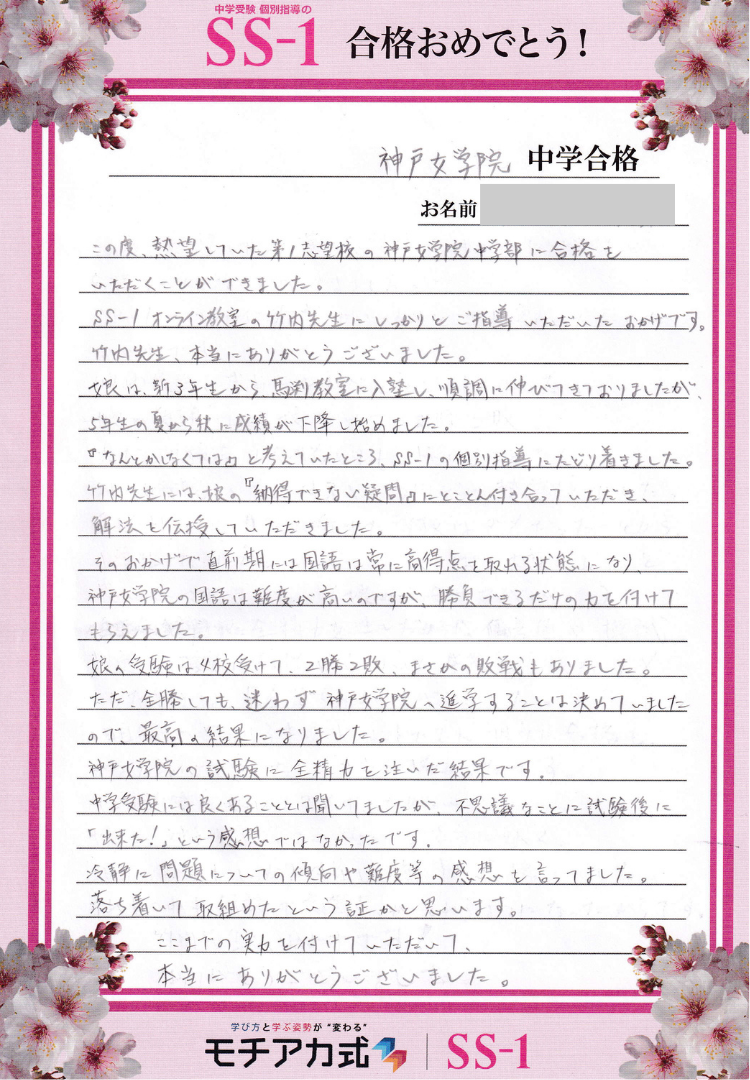 中学受験 個別指導の
SS-1 合格おめでとう！
神戸女学院 中学合格
お名前
この度、熱望していた第1志望校の神戸女学院中学部に合格を
いただくことができました。
SS-1 オンライン教室の竹内先生にしっかりとご指導いただいたおかげです。
竹内先生、本当にありがとうございました。
娘は、新3年生から、馬渕教室に入塾し、順調に伸びてきておりましたが、
5年生の夏から秋に成績が下降し始めました。
『なんとかしなくては』と考えていたところ、SS-1の個別指導にたどり着きました。
竹内先生には、娘の『納得できない疑問』にとことん付き合っていただき、
解法を伝授していただきました。
そのおかげで直前期には国語は常に高得点を取れる状態になり、
神戸女学院の国語は難度が高いのですが、勝負できるだけの力を付けて
もらえました。
娘の受験は4校受けて、2勝2敗、まさかの敗戦もありました。
ただ、全勝しても、迷わず神戸女学院へ進学することは決めていました
ので、最高の結果になりました。
神戸女学院の試験に全精力を注いだ結果です。
中学受験には良くあることとは聞いてましたが、不思議なことに試験後に
「出来た！」という感想ではなかったです。
冷静に問題についての傾向や難度等の感想を言ってました。
落ち着いて取組めたという証かと思います。
ここまでの実力を付けていただいて、
本当にありがとうございました。
学び方と学ぶ姿勢が“変わる”
モチアカ式 SS-1